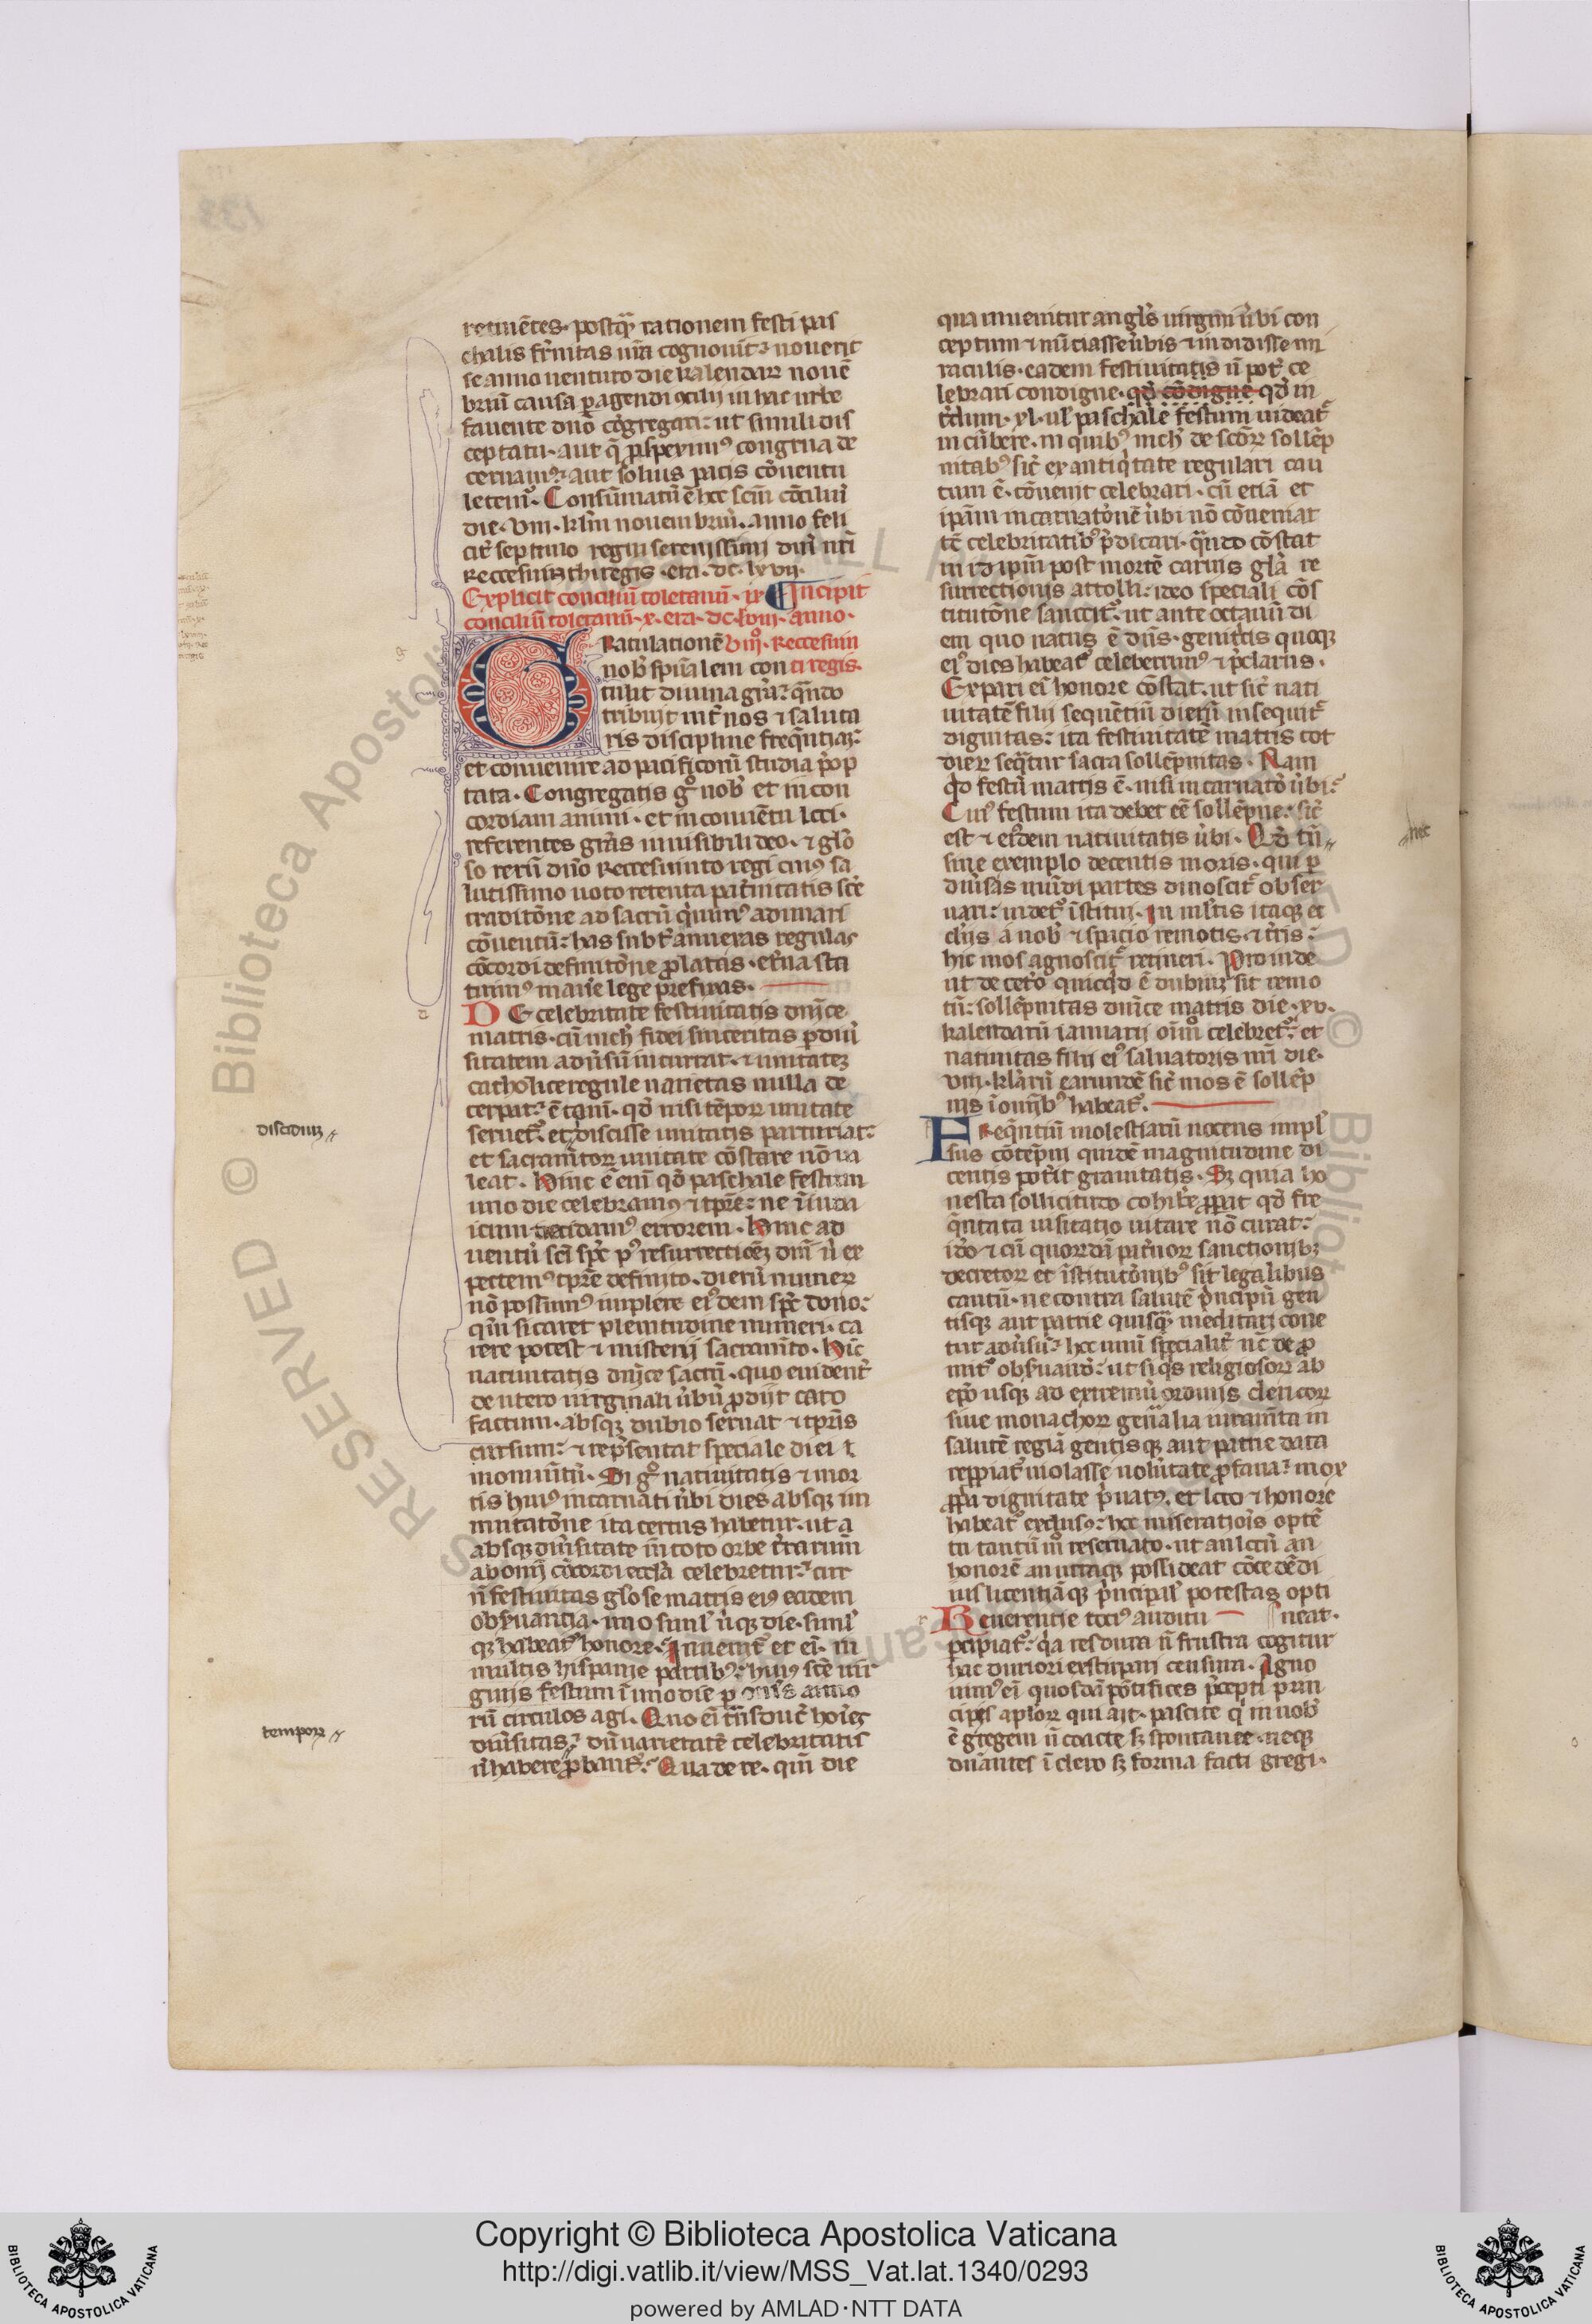 retinētes. postq̄ꝫ rationem festi pas
chalis fr̄nitas nr̄a cognouit: nouerit
se anno uenturo die kalendaꝝ nouē
briū causa ꝑagendi ↄcilij in hac urbe
fauente dnō cōgregari: ut simili dis
ceptatu. aut q̄ ꝓspeximꝰ congrua de
cernamꝰ: aut solius pacis cōuentu
letemꝰ. Consūmatū ē hoc scm̄ cōciliū
die. viii. kl̄m nouembriū. anno feli
cit̄ septimo regni serenissimi dn̄i nr̄i
Reccesuinthi regis. era. dc. lxvii.
Explicit conciliū toletanū. ix ¶ Incipit
conciliū toletanū. x. era. dc. lviii. anno.
Gratulationē viiiº. Reccesuin
nob̄ spūalem con ti regis.
tulit diuina gr̄a: qn̄do
tribuit int̄ nos ⁊ saluta
ris discipline freq̄ntia:
et conuenire ad pacificoꝝ studia p̄op
tata. Congregatis gͦ nob̄ et in con
cordiam animi. et in conuētu loci.
referentes gr̄as inuisibili deo. ⁊ glō
so rerū dn̄o Reccesuinto regi cuiꝰ sa
lutissimo uoto retenta pat̄nitatis scē
traditōne ad sacrū quiuimꝰ adunari
cōuentū: has subt̄ annexas regulas
cōcordi definitōne ꝓlatas. et̄na sta
tuimꝰ manē lege prefixas.
DE celebritate festiuitatis dn̄ice
matris. cū nich̄ fidei sinceritas ꝑ diū
sitatem aduersū incurrat. ⁊ unitateꝫ
catholice regule uarietas nulla de
cerpat: ē tam̄. qd̄ nisi tēpoꝝ unitate
seruetꝰ. et discisse unitatis parturiat:
et sacramētoꝝ unitate cōstare nō ua
leat. Hinc ē eni qd̄ paschale festum
uno die celebramꝰ ⁊ tp̄re: ne ī iuda
icum decidamꝰ errorem. Hinc ad
uentū sc̄i sp̄c pꝰ resurrectiōeꝫ dn̄i ū ex
pectemꝰ tp̄re definito. dierū numeꝝ
nō possumꝰ implere eiꝰdem sp̄c dono:
qm̄ si caret plenitudine numeri. ca
rere potest ⁊ misterij sacramēto. Hīc
natiuitatis dn̄ice sacrū. quo euident̄
de utero uirginali ūbū ꝓdijt caro
factum. absqꝫ dubio seruat ⁊ tp̄ris
cursum: ⁊ rep̄sentat speciale diei t
monumētū. Si gͦ natiuitatis ⁊ mor
tis huiꝰ incarnati ūbi dies absqꝫ im
mutatōne ita certus habetur. ut a
absqꝫ diūsitate in toto orbe t̄rarum
ab omi cōcordi eccl̄a celebretur: cur
n̄ festiuitas glōse matris eiꝰ eadem
obseruantia. uno siml̄ ūqꝫ die. siml̄
qꝫ habeatꝰ honore. Inuenitꝰ et eī. in
multis hispanie partibꝰ: huiꝰ scē uir
ginis festum ī uno die ꝑ om̄s anno
rū circulos agi. Quo eī trāsduct̄ hoīes
diūsitas: dū uarietatē celebritatis
n̄ habere ꝓbantꝰ. Qua de re. qm̄ die
qua inuenitur angl̄s uirgini ūbi con
ceptum ⁊ nūciasse ūbis ⁊ indidisse mi
raculis. eadem festiuitatis n̄ potꝰ ce
lebrari condigne. qd̄ cōdigne qd̄ in
t̄dum. xl. ul̄ paschale festum uideatꝰ
incūbere. in quibꝰ nich̄ de scōꝝ sollēp
nitabꝰ sic̄ ex antiq̄tate regulari cau
tum ē. cōuenit celebrari. cū etiā et
ip̄am incarnatōnē ūbi nō cōueniat
tē celebritatibꝰ p̄dicari. qn̄do cōstat
in id ipm̄ post mortē carnis gl̄a re
surrectionis attolli: ideo speciali cōs
titutōne sanccitꝰ. ut ante octauū di
em quo natus ē dn̄s. genitricis quoqꝫ
eiꝰ dies habeatꝰ celeberrimꝰ ⁊ p̄clarus.
Ex pari eī honore cōstat. ut sic̄ nati
uitatē filij sequētiū dierū insequitꝰ
dignitas: ita festiuitatē matris tot
dieꝝ seq̄tur sacra sollēpnitas. Nam
qd̄ festū matris ē. nisi incarnatō ūbi:
Cuiꝰ festum ita debet eē sollēpne: sic̄
est ⁊ eiꝰdem natiuitatis ūbi. Qd̄ tn̄
sine exemplo decentis moris. qui ꝑ
diūsas mūdi partes dinoscitꝰ obser
uari: uidetꝰ īstitui. In mltis itaqꝫ et
clijs a nob̄ ⁊ spacio remotis. ⁊ t̄ris:
hic mos agnoscitꝰ retineri. Proinde
ut de cet̄o quicqd̄ ē dubiuꝫ sit remo
tū: sollēpnitas dn̄ice matris die. xv.
kalendarū ianuarij omīo celebretꝰ: et
natiuitas filij eiꝰ saluatoris nr̄i die.
viii. klarū earundē sic̄ mos ē sollēp
nis ī omībꝰ habeatꝰ.
FReq̄ntiū molestiarū nocens impl̄
sus cōtēpni quidē magnitudine di
centis pot̄it grauitatis. Sꝫ quia ho
nesta sollicitudo cohib̄e ꝓpat qd̄ fre
q̄ntata uisitatio uitare nō curat:
ido ⁊ cū quorūdā patrnoꝝ sanctionibꝫ
decretoꝝ et īstitutōnibꝰ sit legalibus
cautū. ne contra salutē p̄ncipū gen
tisqꝫ aut patrie quisqꝫ meditari cone
tur aduersū: hec unū specialit̄ nc̄ de ꝓ
mitꝰ obseruādo: ut si q̄s religiosoꝝ ab
ep̄o usqꝫ ad extremū ordinis clericoꝝ
siue monachoꝝ gen̄alia iuramēta in
salutē regiā gentisqꝫ aut patrie data
repp̄iatꝰ uiolasse uolūtate ꝓfana: mox
ꝓp̄a dignitate p̄uatꝰ. et loco ⁊ honore
habeatꝰ exclusꝰ: hoc miserationis optē
tu tantū mͦ reseruato. ut an locū an
honorē an utraqꝫ possideat cōcedēdi
ius licentiāqꝫ p̄ncipal̄ potestas opti
Reuerentie tociꝰ auditu neat.
ꝑcipiatꝰ: qa res dura n̄ frustra cogitur
hac duriori exstirpari censura. Agno
uimꝰ eī quosdā pōtifices p̄cepti prin
cipis apl̄oꝝ qui ait. pascite q̄ in uob̄
ē gregem n̄ coacte sꝫ spontanee. neqꝫ
dn̄antes ī clero sꝫ forma facti gregi.
discidiuꝫ
tempoꝝ
hec
Copyright © Biblioteca Apostolica Vaticana
http://digi.vatlib.it/view/MSS_Vat.lat.1340/0293
powered by AMLAD·NTT DATA
BIBLIOTECA APOSTOLICA VATICANA
BIBLIOTECA APOSTOLICA VATICANA